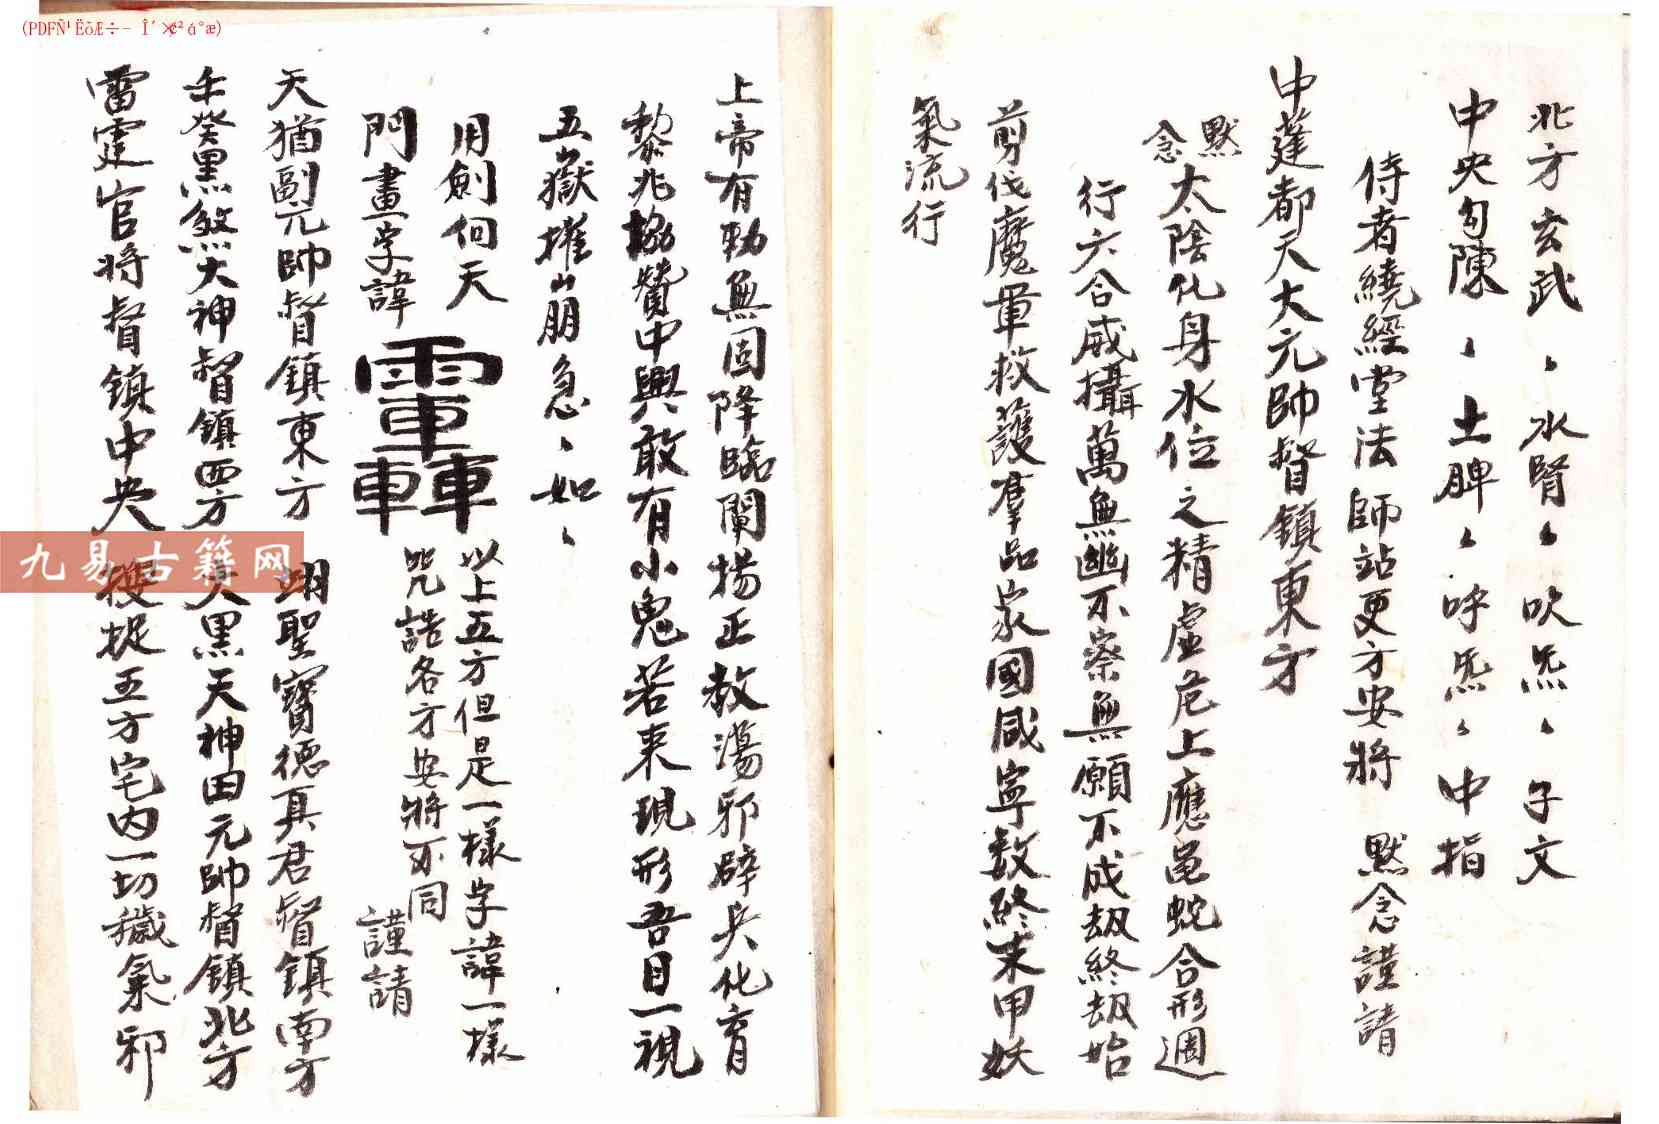 北方玄武、、水腎、、吹炁、、子文
中央勾陳、、土脾、、呼炁、、中指
侍者繞經堂法師站更方安將 默念謹請
中蓬都天大元帥督鎮東方
默念 太陰化身水位之精虛危上應龜蛇合形週
行六合威攝萬無幽不察無願不成劫終劫始
剪伐魔軍救護羣品家國咸寧数終末甲妖
氣流行
上帝有勅無固降臨闡揚正教蕩邪辟兵化育
黎兆協贊中興敢有小鬼若来現形吾目一視
五嶽摧山朋急、如、
用劍何天
門畫字諱
以上五方但是一樣字諱一様
咒誥各方安將不同
謹請
天猶副元帥督鎮東方 翊聖寶德真君督鎮南方
壬癸黑煞大神督鎮西方 大黑天神田元帥督鎮北方
雷霆官将督鎮中央 捉五方宅内一切穢氣邪
九易古籍网
(PDFÑ¹ËõÆ÷- Î´×¢²á°æ)